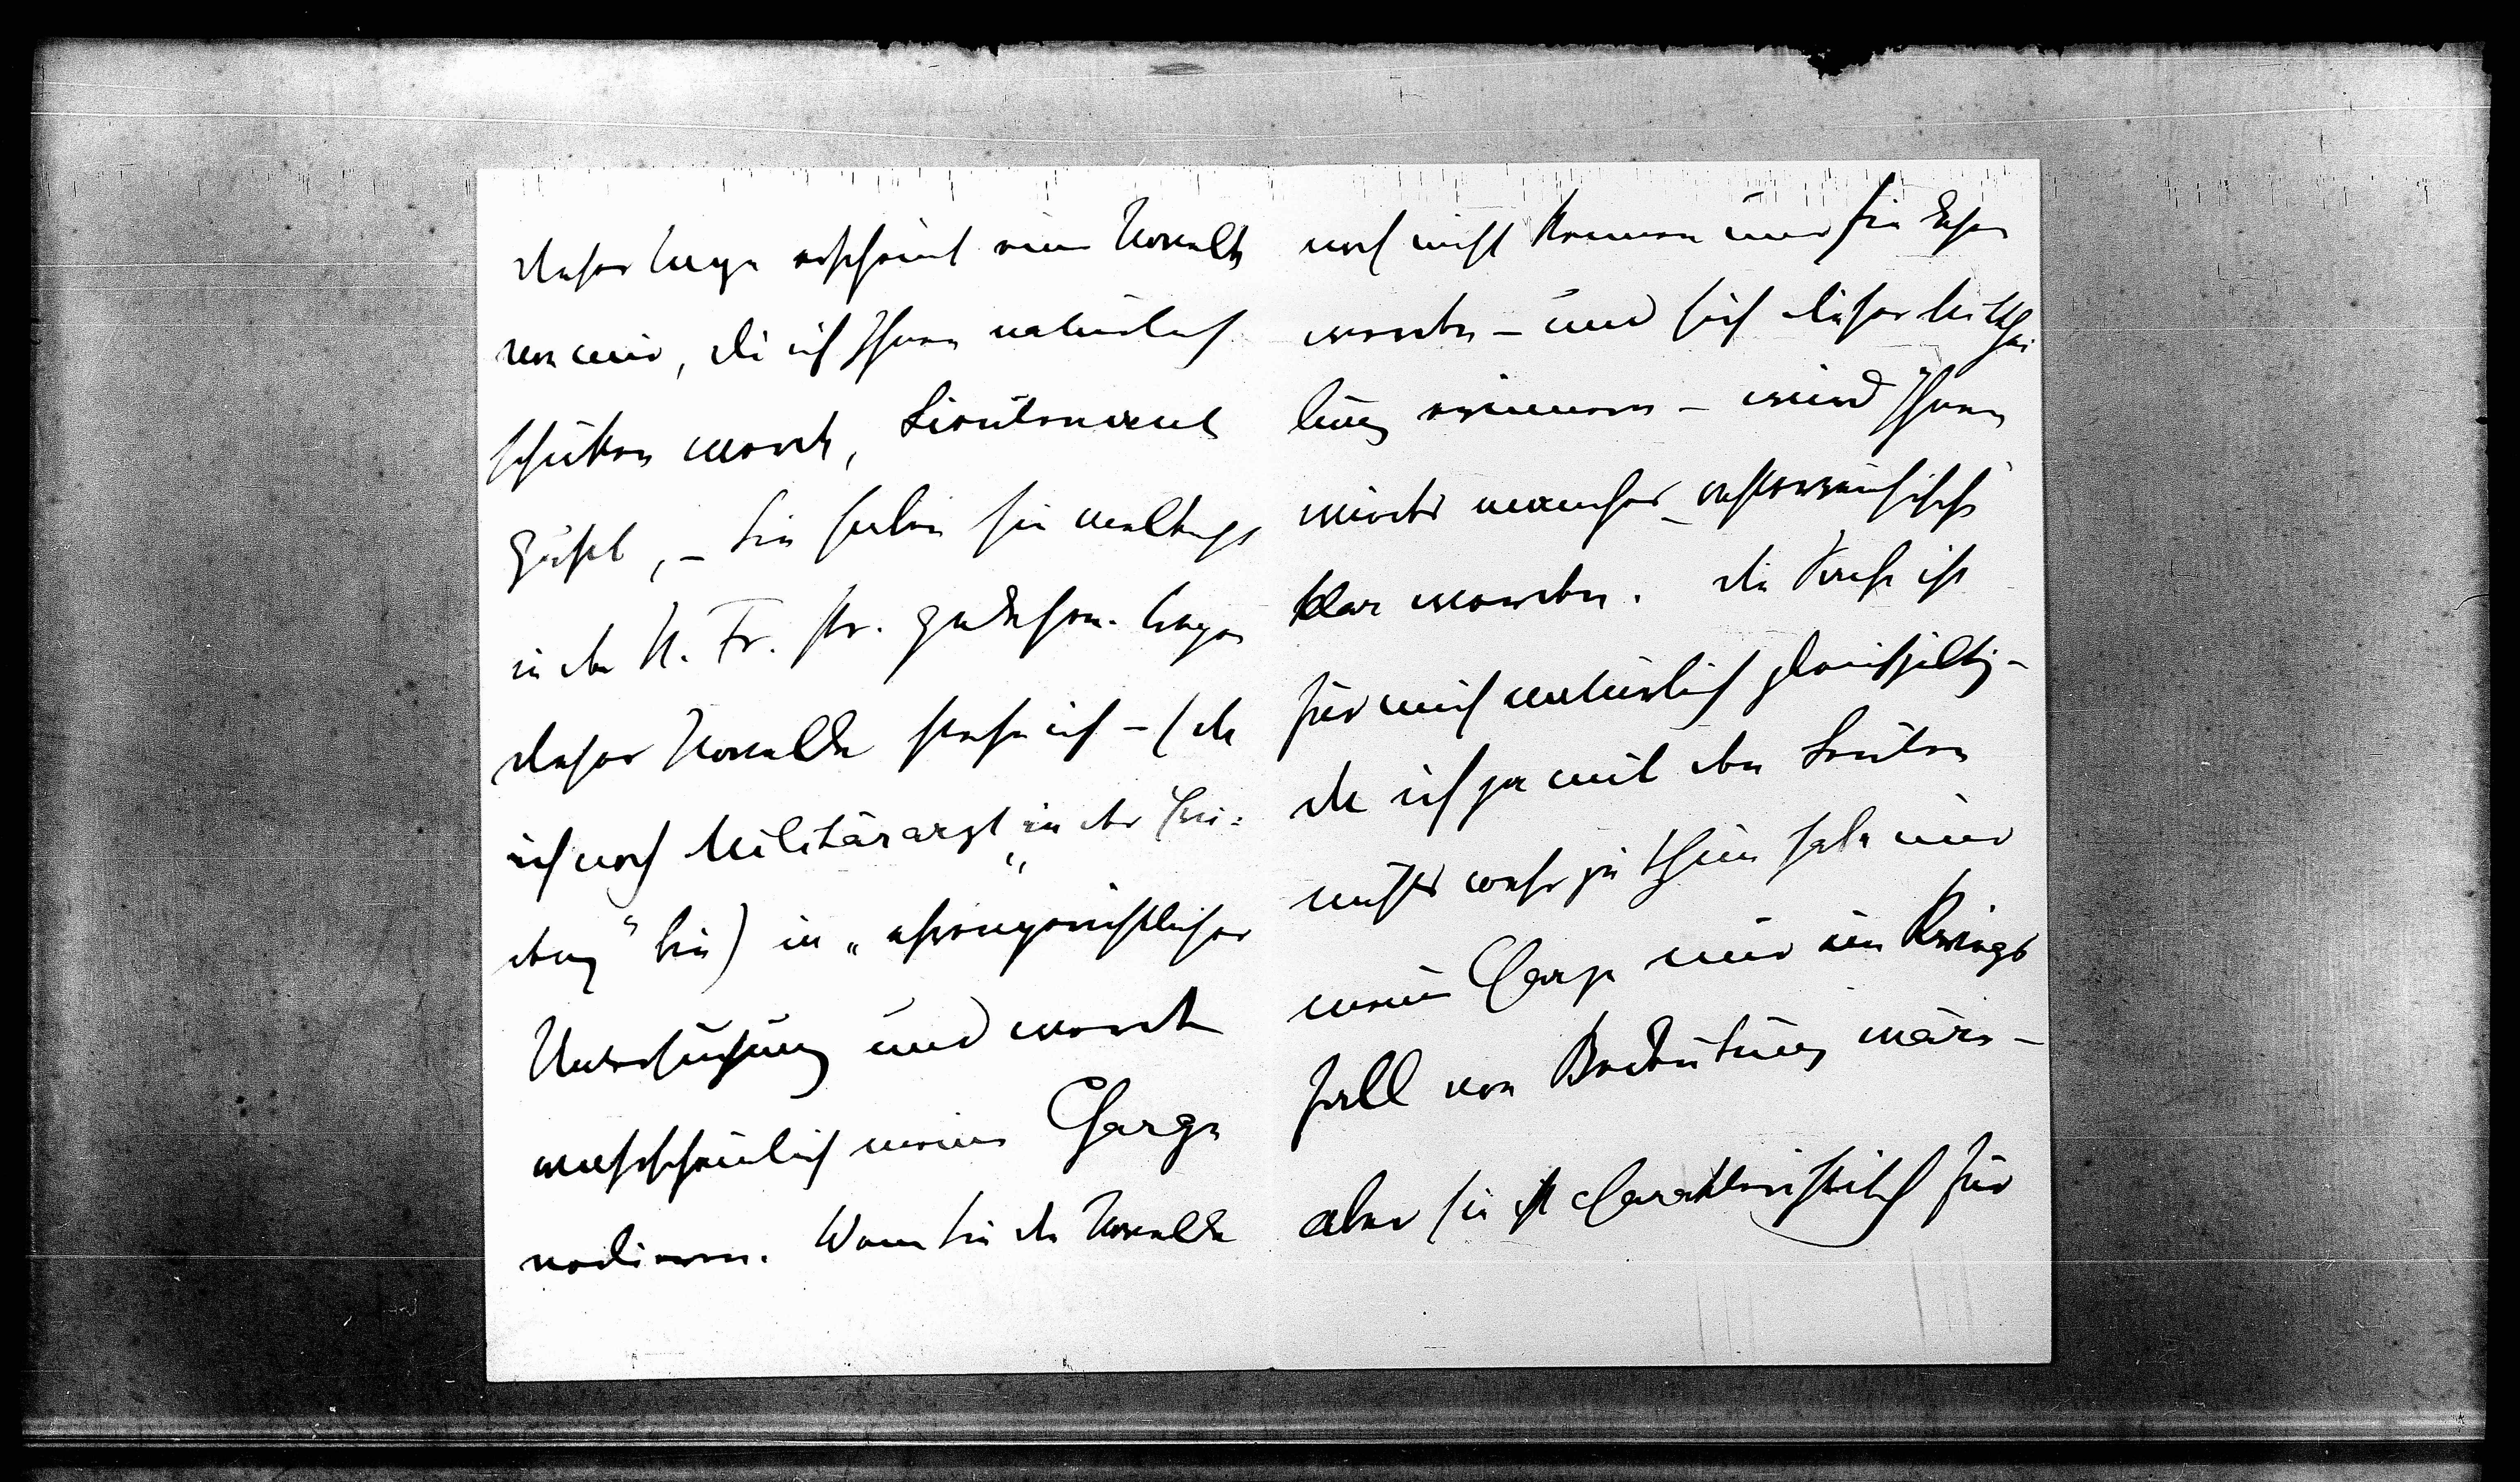 dieser Tage erscheint eine Novelle
von mir, die ich Ihnen natürlich
schicken werde, Lieutenant
Gustl, – Sie haben sie vielleicht
in der N. Fr. Pr. gelesen. Wegen
dieser Novelle stehe ich – (da
ich noch Militärarzt „in der Evi-
denz“ bin) in „ehrengerichtlicher
Untersuchung und werde
wahrscheinlich meine Charge
verlieren. Wenn Sie die Novelle
noch nicht kennen und sie lesen
werden – und sich dieser Mitthei
lung erinnern – wird Ihnen
wieder mancher österreichische
klar werden. Die Sache ist
für mich natürlich gleichgiltig –
da ich ja mit den Leuten
nichts mehr zu thun habe und
meine Charge nur im Kriegs
fall von Bedeutung wäre –
aber sie ist charakteristisch für